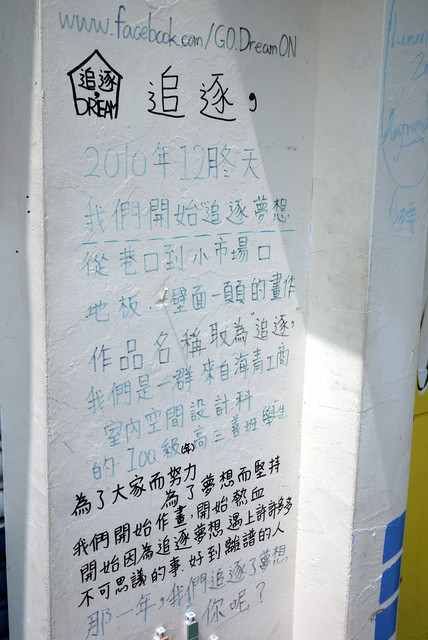 www.facebook.com/GO.DreamON
追逐,
DREAM
追逐,
2010年12月冬天
我們開始"追逐夢想
從巷口到小市場口
地板.壁面一顆的畫作
作品名稱取為"追逐,"
我們是一群來自海青工商
室內空間設計科
的100級(年)高三善班學生
為了大家而努力
為了夢想而堅持
我們開始作畫,開始熱血
開始因為追逐夢想遇上許許多多
不可思議的事好到離譜的人
那一年,我們追逐了夢想
你呢?